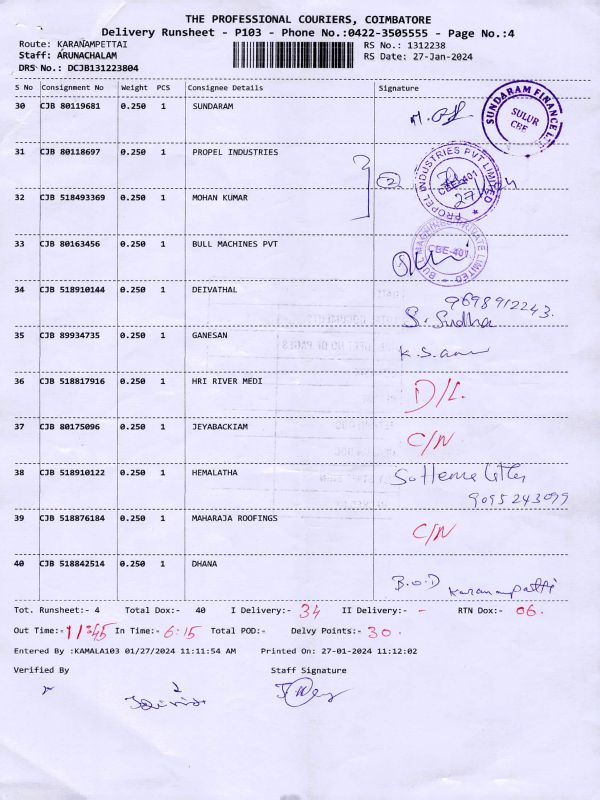 THE PROFESSIONAL COURIERS, COIMBATORE
Delivery Runsheet - P103 - Phone No.:0422-3505555 - Page No.:4
Route: KARANAMPETTAI RS No.: 1312238
Staff: ARUNACHALAM RS Date: 27-Jan-2024
DRS No.: DCJB131223804
S No Consignment No Weight PCS Consignee Details Signature
30 CJB 80119681 0.250 1 SUNDARAM
SUNDARAM FINANCE L
SULUR
CBE
31 CJB 80118697 0.250 1 PROPEL INDUSTRIES
PROPEL INDUSTRIES PVT LIMITED
CBE-401
32 CJB 518493369 0.250 1 MOHAN KUMAR
33 CJB 80163456 0.250 1 BULL MACHINES PVT
BULL MACHINES PRIVATE LIMITED
CBE-401
34 CJB 518910144 0.250 1 DEIVATHAL 9698912243.
S. Sudha
35 CJB 89934735 0.250 1 GANESAN
36 CJB 518817916 0.250 1 HRI RIVER MEDI D/L.
37 CJB 80175096 0.250 1 JEYABACKIAM C/N
38 CJB 518910122 0.250 1 HEMALATHA
9095243099
39 CJB 518876184 0.250 1 MAHARAJA ROOFINGS C/N
40 CJB 518842514 0.250 1 DHANA B.O.D Karanampatti
Tot. Runsheet:- 4 Total Dox:- 40 I Delivery:- 34 II Delivery:- - RTN Dox:- 06.
Out Time:- 11:45 In Time:- 6:15 Total POD:- Delvy Points:- 30.
Entered By :KAMALA103 01/27/2024 11:11:54 AM Printed On: 27-01-2024 11:12:02
Verified By Staff Signature